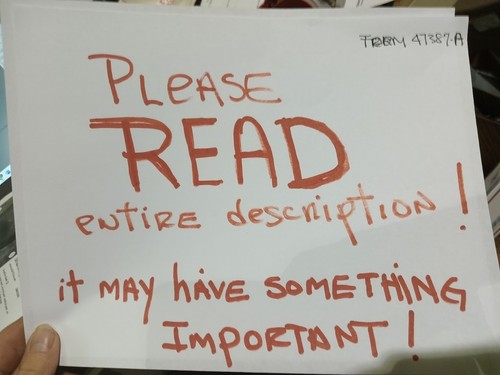 FORM 47387-A
PLeASE
READ
entiRE description!
it MAY hAVE SOMETHING
IMPORTANT!